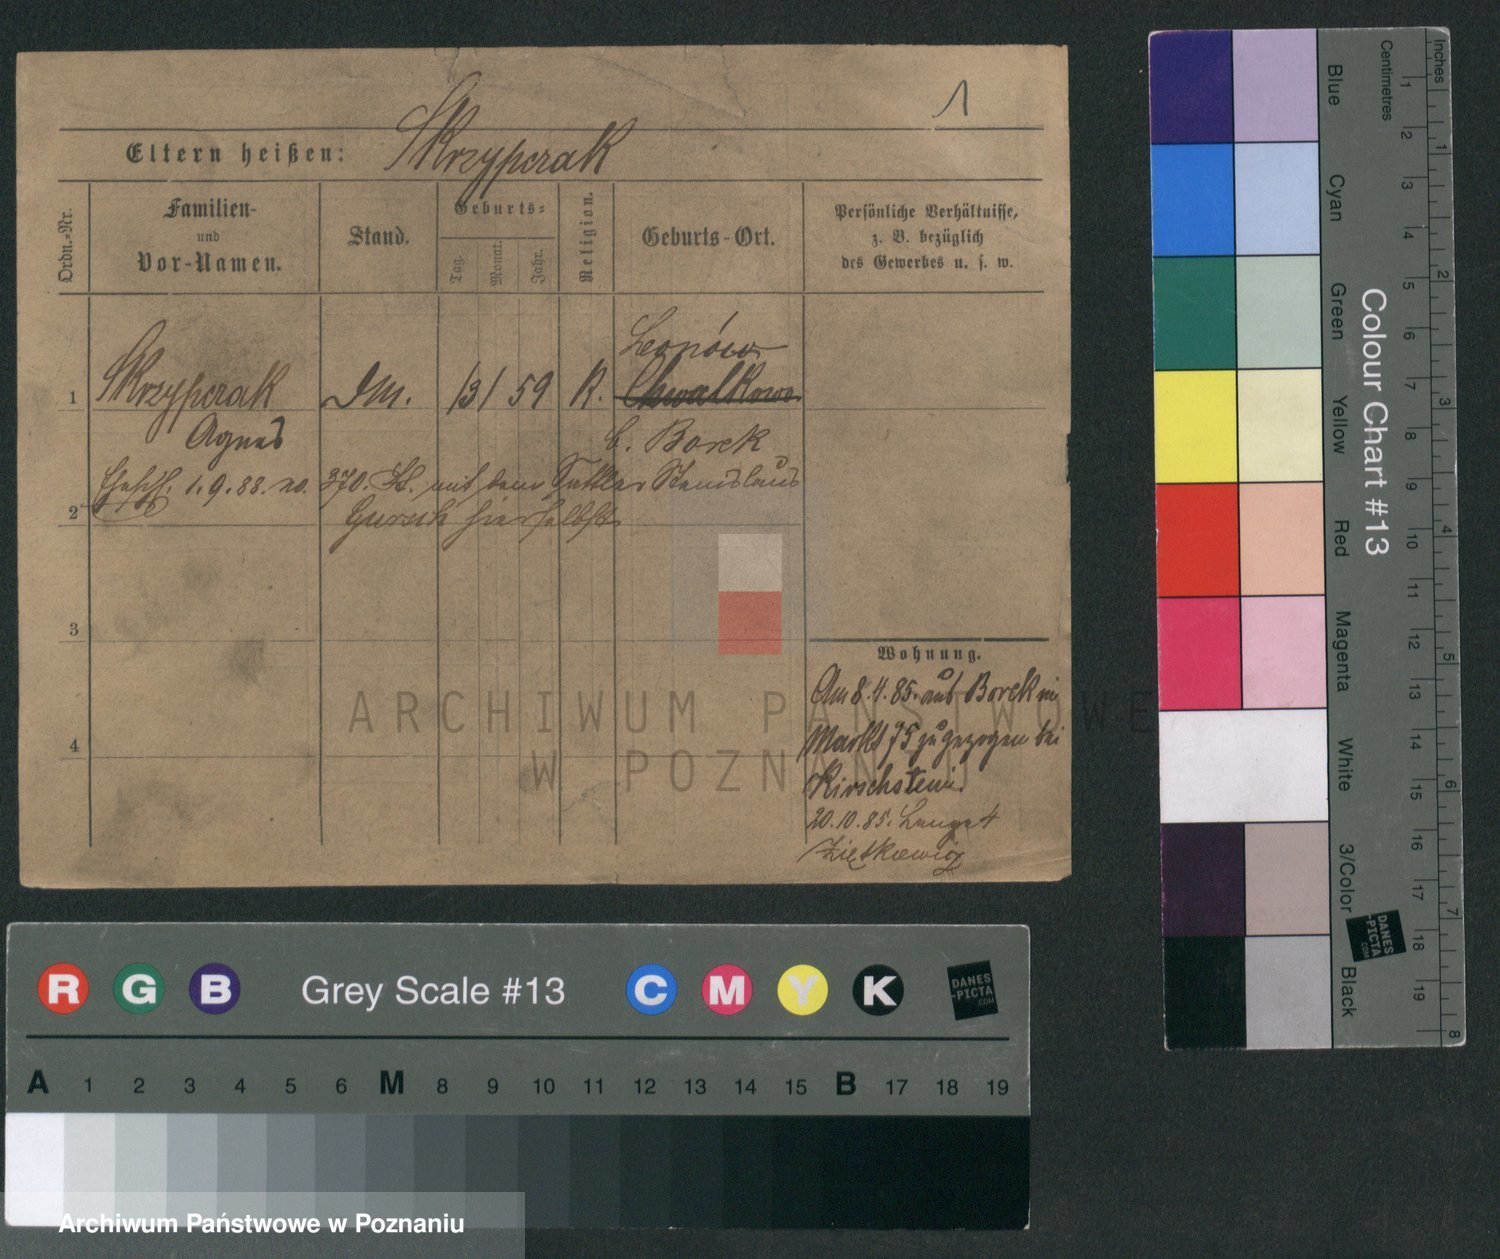 1
Eltern heißen: Skrzypczak
Ordn.-Nr.
Familien-
und
Vor-Namen.
Stand.
Geburts-
Tag.
Monat.
Jahr.
Religion.
Geburts-Ort.
Persönliche Verhältnisse,
z. B. bezüglich
des Gewerbes u. s. w.
Leonów
1 Skrzypczak DM. 13/1 59 K. Chwalkowo
Agnes b. Borek
Ehesch. 1.9.88. no. 370. St. mit dem Sattler Stanislaus
2
Gursch hierselbst
3
Wohnung.
Am 8.4.85. aus Borek in
Markt 75 zugezogen bei
4
Kirschstein.
20.10.85. Langet
Zietkiewicz
ARCHIWUM PAŃSTWOWE
W POZNANIU
Inches
Centimetres
1 2 3 4 5 6 7 8 9 10 11 12 13 14 15 16 17 18 19
1 2 3 4 5 6 7 8
Colour Chart #13
Blue
Cyan
Green
Yellow
Red
Magenta
White
3/Color
Black
DANES
-PICTA
.COM
R G B Grey Scale #13 C M Y K
DANES
-PICTA
.COM
A 1 2 3 4 5 6 M 8 9 10 11 12 13 14 15 B 17 18 19
Archiwum Państwowe w Poznaniu